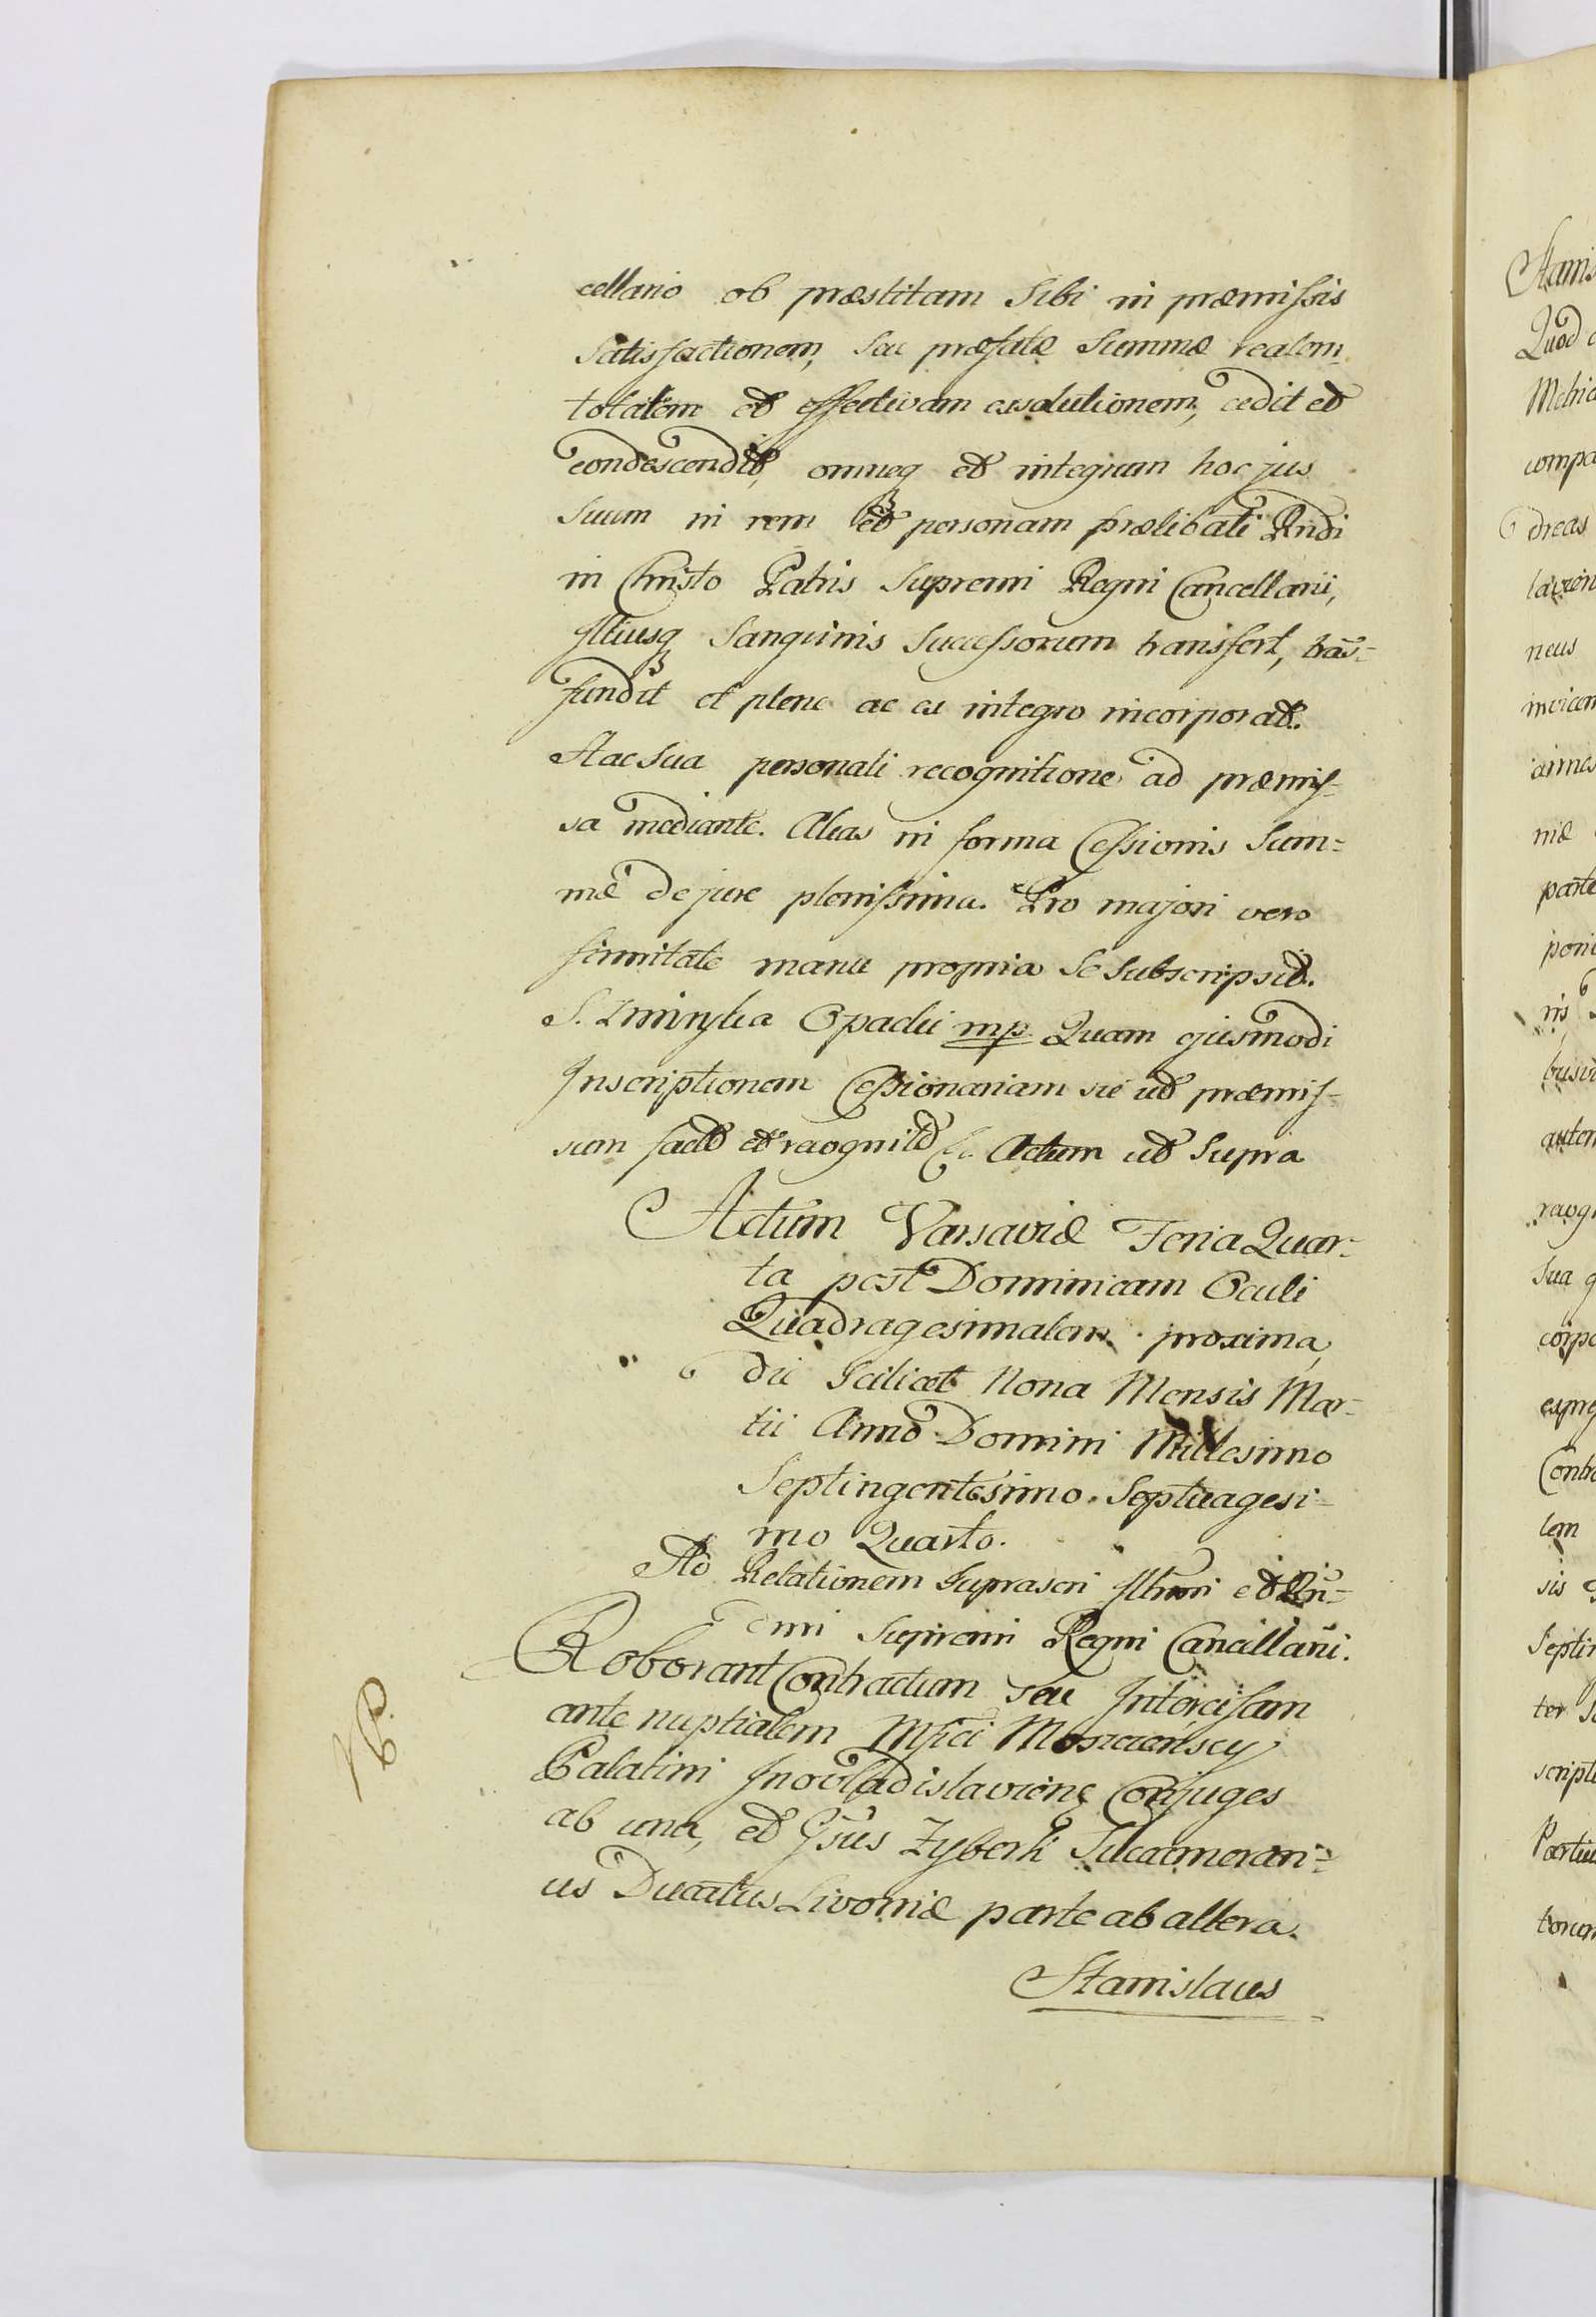 cellario ob præstitam Sibi in præmissis
Satisfactionem, Seu præfatæ Summæ realem
totalem et effectivam exsolutionem, cedit et
condescendit, omneq et integrum hoc jus
Suum in rem et personam prælibati Rndi
in Christo Patris Supremi Regni Cancellarii,
Illiusq Sanguinis Successorum transfert, trãs-
fundit et plene ac ex integro incorporat.
Hac Sua personali recognitione ad præmis-
sa mediante. Alias in forma Cessionis Sum=
mæ de jure plenissima. Pro majori vero
firmitate manu propria Se Subscripsit.
S. Opacki mp. Quam ejusmodi
Inscriptionem Cessionariam sic ut præmis-
sum fact et recognit Actum ut Supra
Actum Varsaviæ Feria Quar=
ta post Dominicam Oculi
Quadragesimalem proxima,
die Scilicet Nona Mensis Mar=
tii Anno Domini Millesimo
Septingentesimo Septuagesi=
mo Quarto.
Ad Relationem Suprascri Illmi et Rñ=
dmi Supremi Regni Cancellarii.
Roborant Contractum Seu Intercisam
ante nuptialem Mfici Moszczeńscy
Palatini Inovladislavien Conjuges
ab una, et Gsus Zyberk Succamerari=
us Ducatus Livoniæ parte ab altera.
Stanislaus
Stanis
Quod
Metric
compa
dreas
lavien
neus
invicem
niæ
parte
nis
autem
recog
Sua
corpo
expre
Contr
lem
sis
Septin
ter
script
Partiu
torum